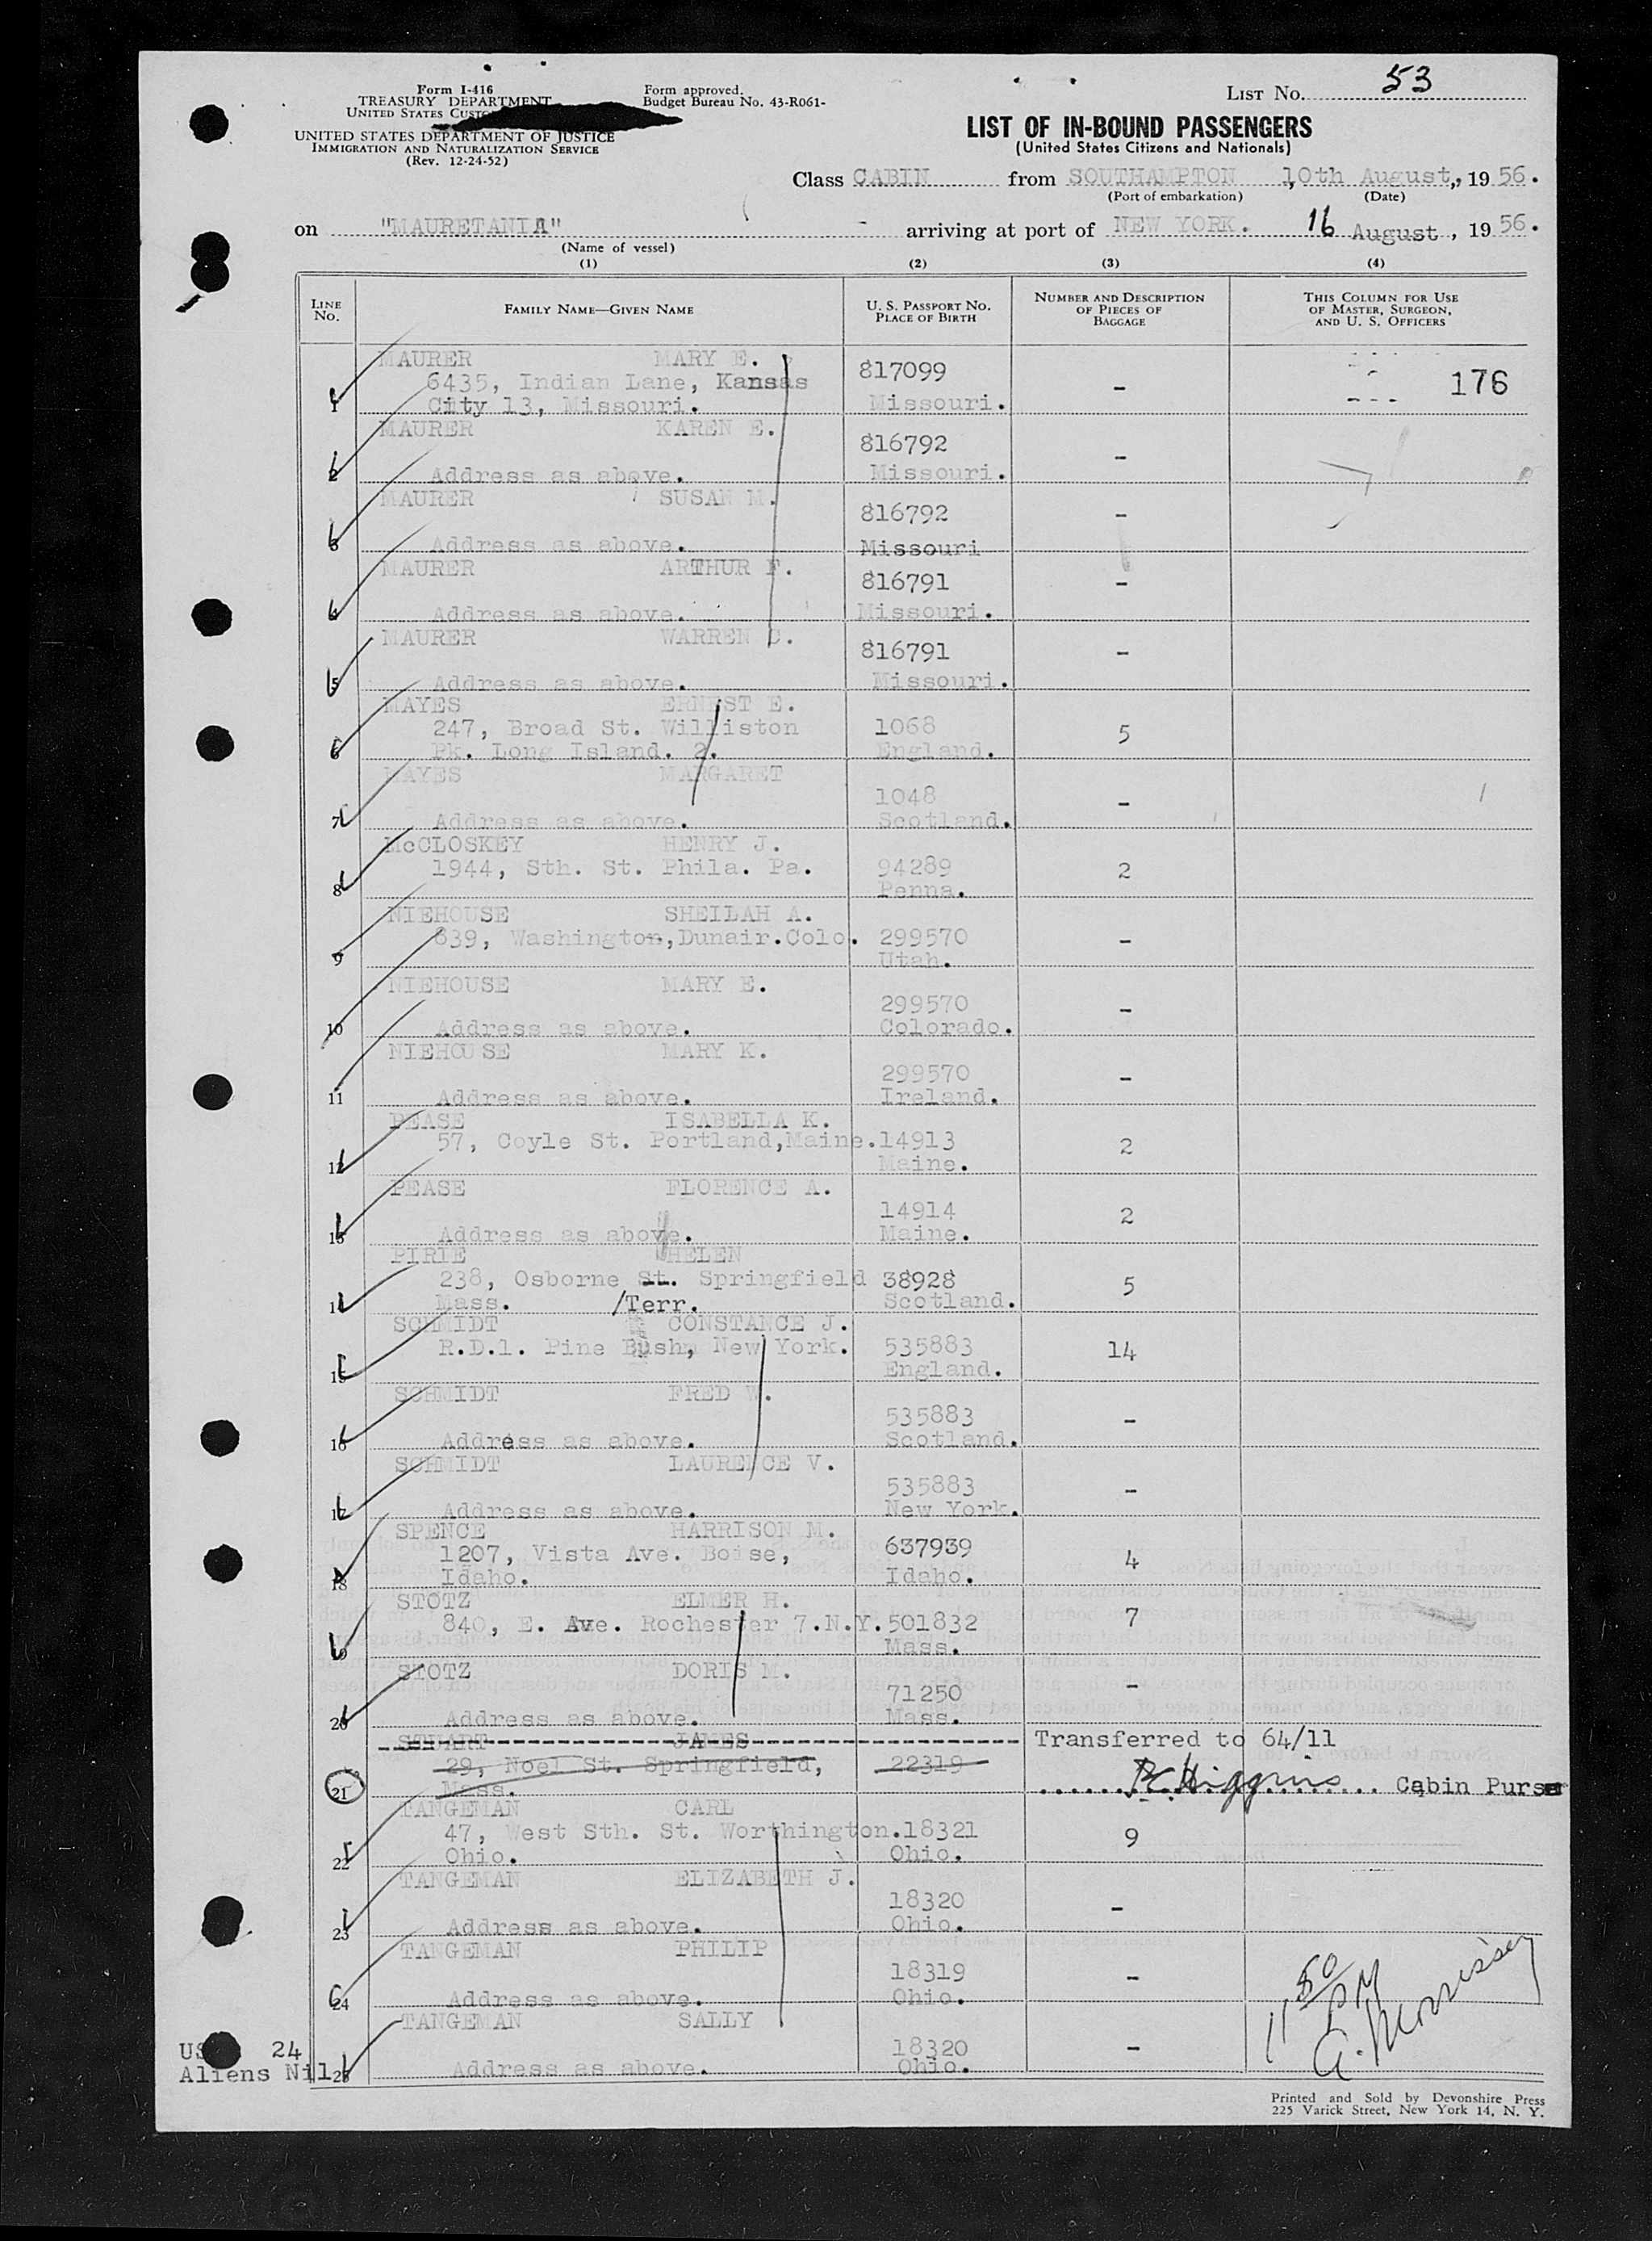 Form I-416
TREASURY DEPARTMENT
UNITED STATES
UNITED STATES DEPARTMENT OF JUSTICE
IMMIGRATION AND NATURALIZATION SERVICE
(Rev. 12-24-52)
Form approved.
Budget Bureau No. 43-R061-
LIST No. 53
LIST OF IN-BOUND PASSENGERS
(United States Citizens and Nationals)
Class CABIN from SOUTHAMPTON , 10th August, , 19 56.
(Port of embarkation) (Date)
on "MAURETANIA" arriving at port of NEW YORK. 16 August , 19 56.
(Name of vessel)
(1) (2) (3) (4)
LINE No. FAMILY NAME—GIVEN NAME U. S. PASSPORT NO. PLACE OF BIRTH NUMBER AND DESCRIPTION OF PIECES OF BAGGAGE THIS COLUMN FOR USE OF MASTER, SURGEON, AND U. S. OFFICERS
MAURER MARY E.
6435, Indian Lane, Kansas 817099 - 176
1 City 13, Missouri. Missouri.
MAURER KAREN E.
816792 -
2 Address as above. Missouri.
MAURER SUSAN M.
816792 -
3 Address as above. Missouri
MAURER ARTHUR F.
816791 -
4 Address as above. Missouri.
MAURER WARREN C.
816791 -
5 Address as above. Missouri.
MAYES ERNEST E.
247, Broad St. Williston 1068 5
6 Pk. Long Island. 2. England.
MAYES MARGARET
1048 -
7 Address as above. Scotland.
McCLOSKEY HENRY J.
1944, Sth. St. Phila. Pa. 94289 2
8 Penna.
NIEHOUSE SHEILAH A.
839, Washington,Dunair.Colo. 299570 -
9 Utah.
NIEHOUSE MARY E.
299570 -
10 Address as above. Colorado.
NIEHOUSE MARY K.
299570 -
11 Address as above. Ireland.
PEASE ISABELLA K.
57, Coyle St. Portland,Maine. 14913 2
12 Maine.
PEASE FLORENCE A.
14914 2
13 Address as above. Maine.
PIRIE HELEN
238, Osborne St. Springfield 38928 5
14 Mass. /Terr. Scotland.
SCHMIDT CONSTANCE J.
R.D.1. Pine Bush, New York. 535883 14
15 England.
SCHMIDT FRED W.
535883 -
16 Address as above. Scotland.
SCHMIDT LAURENCE V.
535883 -
17 Address as above. New York.
SPENCE HARRISON M.
1207, Vista Ave. Boise, 637939 4
18 Idaho. Idaho.
STOTZ ELMER H.
840, E. Ave. Rochester 7.N.Y. 501832 7
19 Mass.
STOTZ DORIS M.
71250 -
20 Address as above. Mass.
STUART JAMES Transferred to 64/11
29, Noel St. Springfield, 22319
21 Mass. R. Higgins Cabin Purser
TANGEMAN CARL
47, West Sth. St. Worthington. 18321 9
22 Ohio. Ohio.
TANGEMAN ELIZABETH J.
18320 -
23 Address as above. Ohio.
TANGEMAN PHILIP
18319 -
24 Address as above. Ohio.
TANGEMAN SALLY
18320 -
25 Address as above. Ohio.
11 50 PM
G. Morrissey
24
Aliens Nil
Printed and Sold by Devonshire Press
225 Varick Street, New York 14, N. Y.